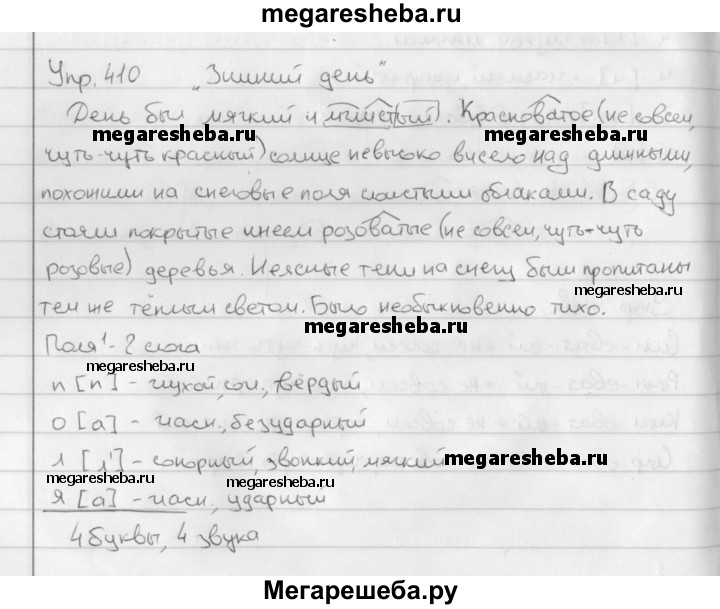 megaresheba.ru
Упр. 410 „Зимний день“
День был мягкий и мглистый. Красноватое (не совсем,
megaresheba.ru
megaresheba.ru
чуть-чуть красный) солнце невысоко висело над длинными,
похожими на снеговые поля слоистыми облаками. В саду
стояли покрытые инеем розоватые (не совсем, чуть-чуть
розовые) деревья. Неясные тени на снегу были пропитаны
megaresheba.ru
тем же тёплым светом. Было необыкновенно тихо.
megaresheba.ru
Поля - 2 слога
megaresheba.ru
п [п] - глухой, сог., твёрдый
о [а] - гласн., безударный
л [л'] - сонорный, звонкий, мягкий
megaresheba.ru
megaresheba.ru
я [а] - гласн., ударный
4 буквы, 4 звука
Мегарешеба.ру